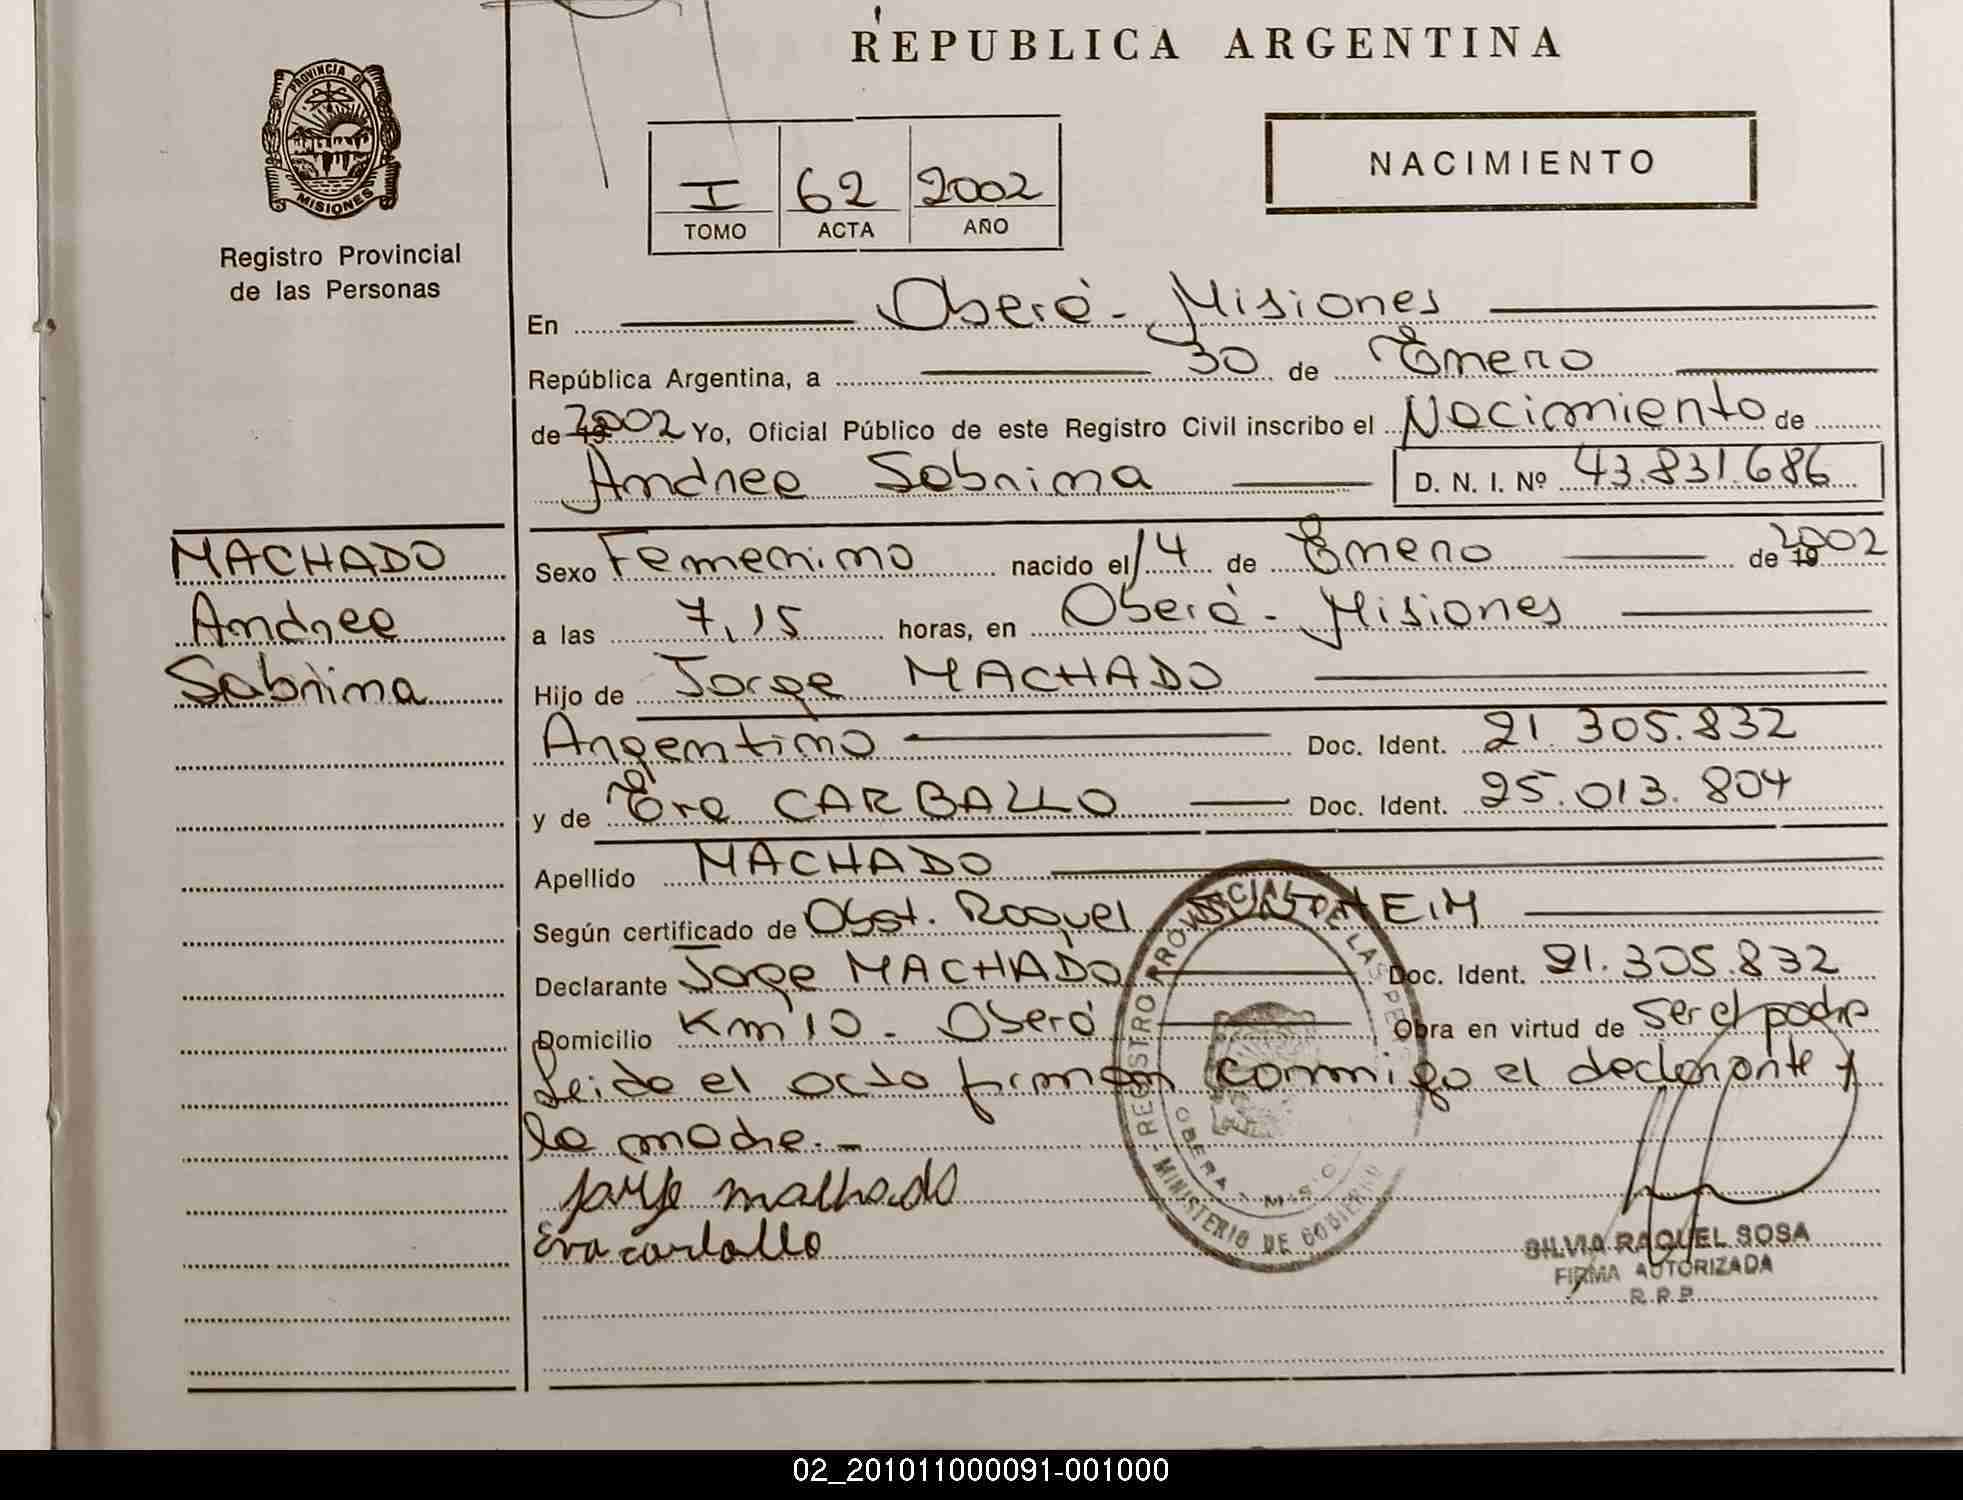 REPUBLICA ARGENTINA
PROVINCIA DE
MISIONES
Registro Provincial
de las Personas
I 62 2002
TOMO ACTA AÑO
NACIMIENTO
En Oberá - Misiones
República Argentina, a 30 de Enero
de 2002 Yo, Oficial Público de este Registro Civil inscribo el Nacimiento de
Andrea Sabrina D. N. I. Nº 43.831.686
MACHADO
Andrea
Sabrina
Sexo Femenino nacido el 14 de Enero de 2002
a las 7,15 horas, en Oberá - Misiones
Hijo de Jorge MACHADO
Argentino Doc. Ident. 21.305.832
y de Eva CARBALLO Doc. Ident. 25.013.804
Apellido MACHADO
Según certificado de Obst. Raquel
Declarante Jorge MACHADO Doc. Ident. 21.305.832
Domicilio Km 10 - Oberá Obra en virtud de ser el padre
Leida el acta firman conmigo el declarante y
la madre.-
Jorge machado
Eva carballo
REGISTRO PROVINCIAL DE LAS PE
OBERA - MISIO
MINISTERIO DE GOBIERNO
SILVIA RAQUEL SOSA
FIRMA AUTORIZADA
R.R.P.
02_201011000091-001000